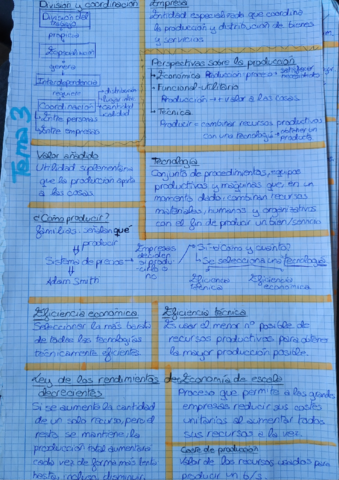 División y coordinación
División del
trabajo
propicia
Especialización
genera
Interdependencia
requiere
Coordinación
Entre personas
Entre empresas
distribución
lugar
cantidad
calidad
Tema 3
Empresa
Entidad especializada que coordina
la producción y distribución de bienes
y servicios
Perspectivas sobre la producción
• Económica
• Funcional-utilitaria
Producción → + valor a las cosas
• Técnica
Producir = combinar recursos productivos
con una tecnología
Valor añadido
Utilidad suplementaria
que la producción aporta
a las cosas
Tecnología
Conjunto de procedimientos, equipos
productivos y máquinas que en un
momento dado combinan recursos
materiales, humanos y organizativos
con el fin de producir un bien/servicio
¿Cómo producir?
familias señalan qué
producir
Sistema de precios
Adam Smith
Empresas
deciden
si produ-
cirlo o
no
Sí → ¿Cómo y cuánto?
Se selecciona una tecnología
Eficiencia
técnica
Eficiencia
económica
Eficiencia económica
Seleccionar la más barata
de todas las tecnologías
técnicamente eficientes
Eficiencia técnica
Es usar el menor nº posible de
recursos productivos para obtener
la mayor producción posible
Ley de los rendimientos
decrecientes
Si se aumenta la cantidad
de un solo recurso, pero el
resto se mantiene, la
producción total aumentará
cada vez de forma más lenta
hasta incluso disminuir
Economía de escala
Proceso que permite a las grandes
empresas reducir sus costes
unitarios al aumentar todos
sus recursos a la vez
Coste de producción
Valor de los recursos usados para
producir un b/s